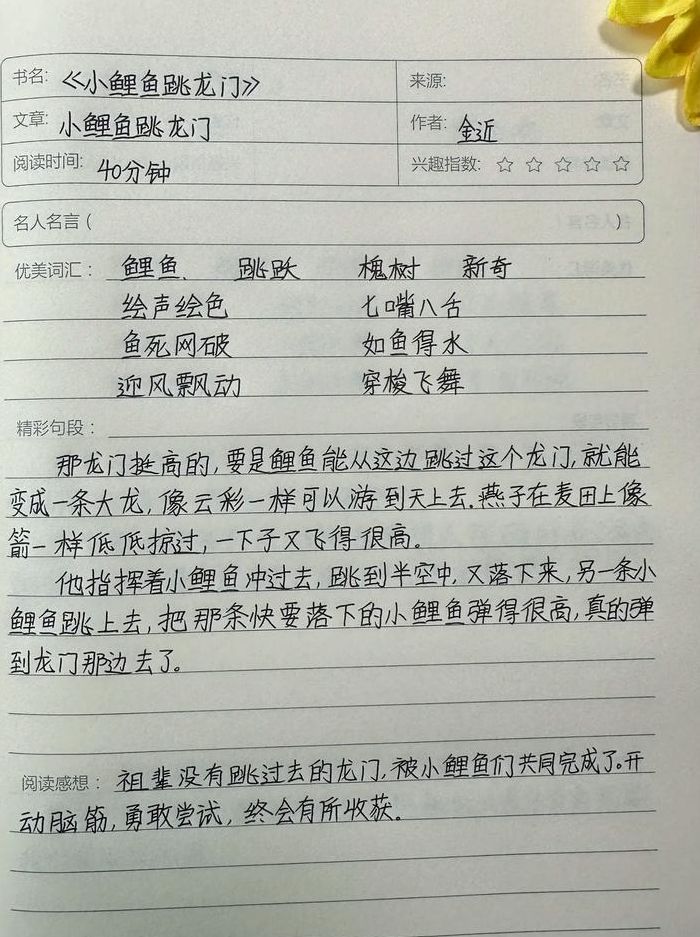 书名: 《小鲤鱼跳龙门》 来源:
文章: 小鲤鱼跳龙门 作者: 金近
阅读时间: 40分钟 兴趣指数: ☆ ☆ ☆ ☆ ☆
名人名言 ( )
优美词汇: 鲤鱼、 跳跃 槐树 新奇
绘声绘色 七嘴八舌
鱼死网破 如鱼得水
迎风飘动 穿梭飞舞
精彩句段:
那龙门挺高的,要是鲤鱼能从这边跳过这个龙门,就能
变成一条大龙,像云彩一样可以游到天上去.燕子在麦田上像
箭一样低低掠过,一下子又飞得很高。
他指挥着小鲤鱼冲过去,跳到半空中,又落下来,另一条小
鲤鱼跳上去,把那条快要落下的小鲤鱼弹得很高,真的弹
到龙门那边去了。
阅读感想: 祖辈没有跳过去的龙门,被小鲤鱼们共同完成了。开
动脑筋,勇敢尝试,终会有所收获。